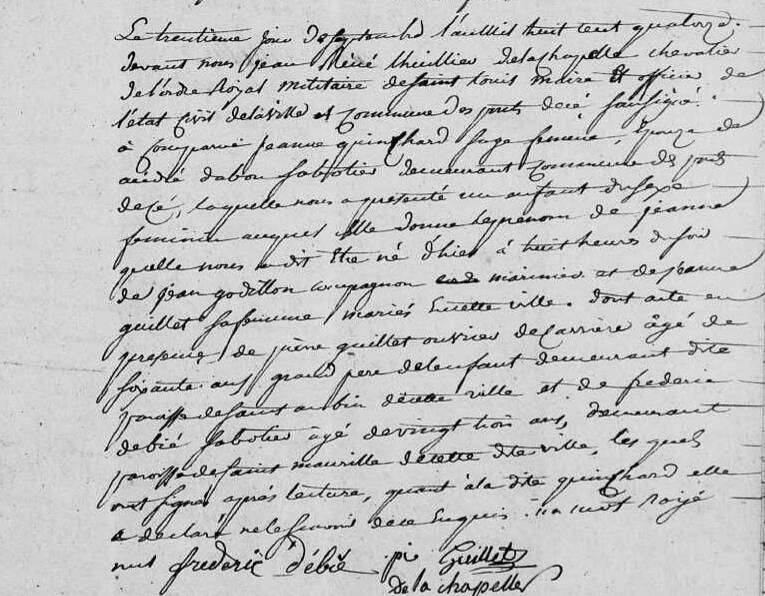 Le trentieme jour de septembre l'an mil huit cent quatorze.
devant nous jean Réné thuillier de la chapelle chevalier
de l'ordre Royal militaire de saint louis maire et officier de
l'état civil de la ville et commune des ponts de cé soussigné.
à comparu jeanne quinchard sage femme, Epouze de
andré dabon sabotier demeurant commune des ponts
de cé, laquelle nous a présenté un enfant du sexe
feminin auquel elle donne le prenom de jeanne
quelle nous a dit être né d'hier à huit heures du soir
de jean godillon compagnon marinier et de jeanne
guillet sa femme mariés en cette ville. dont acte en
presence de pierre guillet ouvrier de carrière âgé de
soixante ans grand pere de l'enfant demeurant dite
paroisse de saint aubin de cette ville et de frederic
debié sabotier âgé de vingt trois ans, demeurant
paroisse de saint maurille de cette dite ville, les quels
ont signé après lecture, quant à la dite quinchard elle
a declaré ne le savoir de ce Enquis. un mot rayé
nul frederic débié pie Guillet
De la chapelle